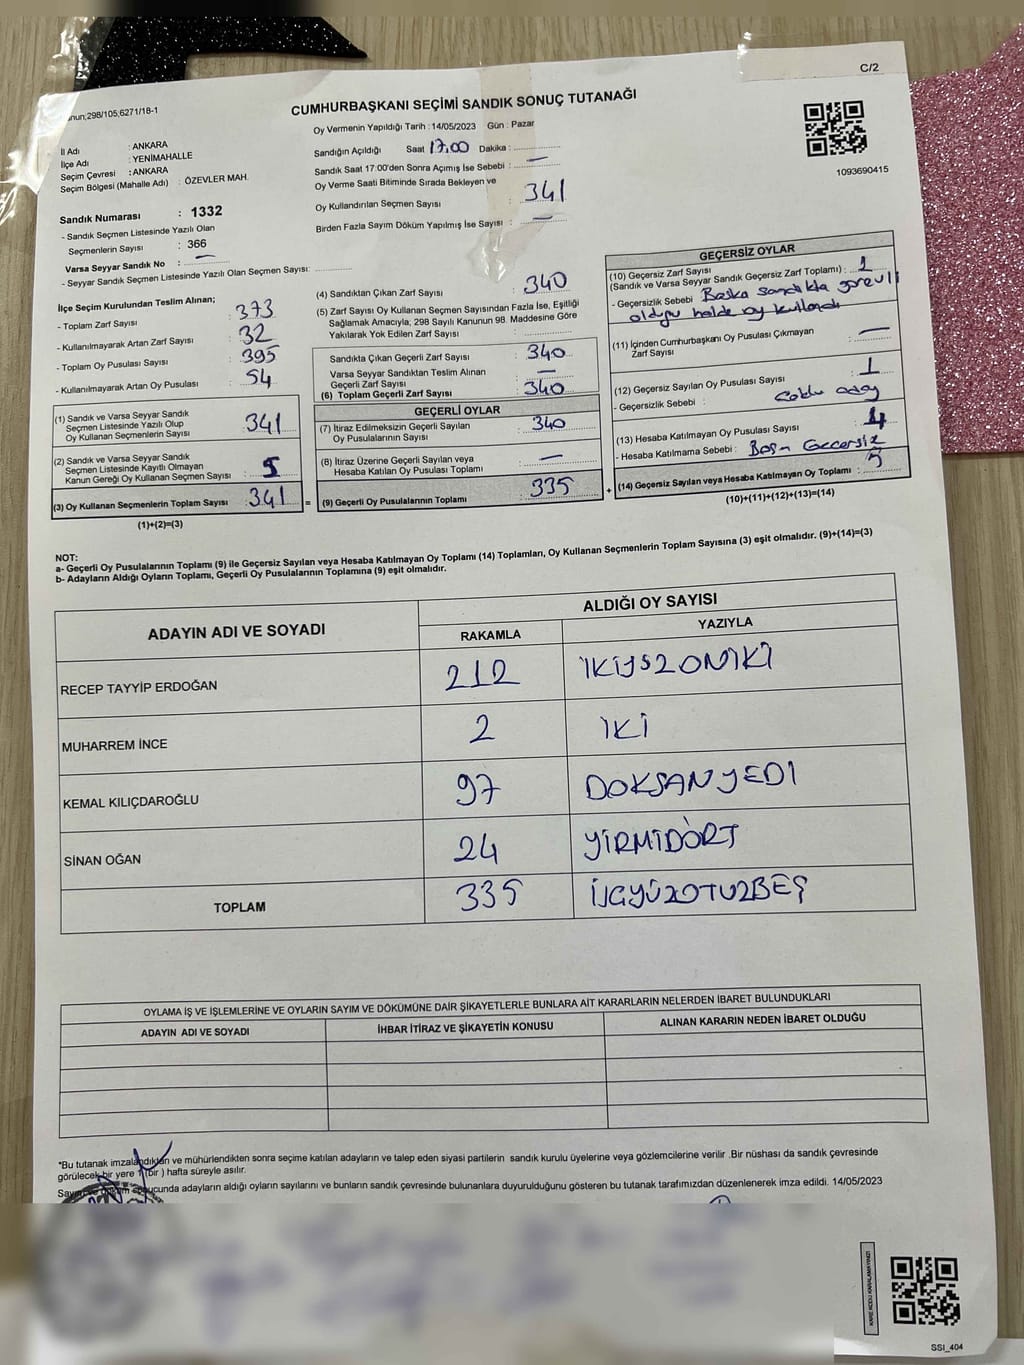 C/2
CUMHURBAŞKANI SEÇİMİ SANDIK SONUÇ TUTANAĞI
298/105;6271/18-1
Oy Vermenin Yapıldığı Tarih : 14/05/2023 Gün : Pazar
İl Adı : ANKARA
İlçe Adı : YENİMAHALLE
Seçim Çevresi : ANKARA
Seçim Bölgesi (Mahalle Adı) : ÖZEVLER MAH.
Sandığın Açıldığı Saat 17.00 Dakika :
Sandık Saat 17:00'den Sonra Açımış İse Sebebi : —
Oy Verme Saati Bitiminde Sırada Bekleyen ve
Oy Kullandırılan Seçmen Sayısı : 341
Birden Fazla Sayım Döküm Yapılmış İse Sayısı : —
1093690415
Sandık Numarası : 1332
- Sandık Seçmen Listesinde Yazılı Olan
Seçmenlerin Sayısı : 366
Varsa Seyyar Sandık No : —
- Seyyar Sandık Seçmen Listesinde Yazılı Olan Seçmen Sayısı:
İlçe Seçim Kurulundan Teslim Alınan;
- Toplam Zarf Sayısı : 373
- Kullanılmayarak Artan Zarf Sayısı : 32
- Toplam Oy Pusulası Sayısı : 395
- Kullanılmayarak Artan Oy Pusulası : 54
(1) Sandık ve Varsa Seyyar Sandık
Seçmen Listesinde Yazılı Olup
Oy Kullanan Seçmenlerin Sayısı : 341
(2) Sandık ve Varsa Seyyar Sandık
Seçmen Listesinde Kayıtlı Olmayan
Kanun Gereği Oy Kullanan Seçmen Sayısı : 5
(3) Oy Kullanan Seçmenlerin Toplam Sayısı : 341 =
(1)+(2)=(3)
(4) Sandıktan Çıkan Zarf Sayısı : 340
(5) Zarf Sayısı Oy Kullanan Seçmen Sayısından Fazla İse, Eşitliği
Sağlamak Amacıyla, 298 Sayılı Kanunun 98. Maddesine Göre
Yakılarak Yok Edilen Zarf Sayısı :
Sandıkta Çıkan Geçerli Zarf Sayısı : 340
Varsa Seyyar Sandıktan Teslim Alınan
Geçerli Zarf Sayısı : —
(6) Toplam Geçerli Zarf Sayısı : 340
GEÇERLİ OYLAR
(7) İtiraz Edilmeksizin Geçerli Sayılan
Oy Pusulalarının Sayısı : 340
(8) İtiraz Üzerine Geçerli Sayılan veya
Hesaba Katılan Oy Pusulası Toplamı : —
(9) Geçerli Oy Pusulalarının Toplamı : 335 +
GEÇERSİZ OYLAR
(10) Geçersiz Zarf Sayısı
(Sandık ve Varsa Seyyar Sandık Geçersiz Zarf Toplamı) : 1
- Geçersizlik Sebebi : Başka sandıkta görevli
olduğu halde oy kullandı
(11) İçinden Cumhurbaşkanı Oy Pusulası Çıkmayan
Zarf Sayısı : —
(12) Geçersiz Sayılan Oy Pusulası Sayısı : 1
- Geçersizlik Sebebi :
(13) Hesaba Katılmayan Oy Pusulası Sayısı :
- Hesaba Katılmama Sebebi : Geçersiz
(14) Geçersiz Sayılan veya Hesaba Katılmayan Oy Toplamı : 5
(10)+(11)+(12)+(13)=(14)
NOT:
a- Geçerli Oy Pusulalarının Toplamı (9) ile Geçersiz Sayılan veya Hesaba Katılmayan Oy Toplamı (14) Toplamları, Oy Kullanan Seçmenlerin Toplam Sayısına (3) eşit olmalıdır. (9)+(14)=(3)
b- Adayların Aldığı Oyların Toplamı, Geçerli Oy Pusulalarının Toplamına (9) eşit olmalıdır.
ADAYIN ADI VE SOYADI ALDIĞI OY SAYISI
RAKAMLA YAZIYLA
RECEP TAYYİP ERDOĞAN 212 İKİYSZONİKİ
MUHARREM İNCE 2 İKİ
KEMAL KILIÇDAROĞLU 97 DOKSANYEDI
SİNAN OĞAN 24 YİRMİDÖRT
TOPLAM 335 ÜÇYÜZOTUZBEŞ
OYLAMA İŞ VE İŞLEMLERİNE VE OYLARIN SAYIM VE DÖKÜMÜNE DAİR ŞİKAYETLERLE BUNLARA AİT KARARLARIN NELERDEN İBARET BULUNDUKLARI
ADAYIN ADI VE SOYADI İHBAR İTİRAZ VE ŞİKAYETİN KONUSU ALINAN KARARIN NEDEN İBARET OLDUĞU
*Bu tutanak imzalandıktan ve mühürlendikten sonra seçime katılan adayların ve talep eden siyasi partilerin sandık kurulu üyelerine veya gözlemcilerine verilir .Bir nüshası da sandık çevresinde
görülecek bir yere 1 (bir ) hafta süreyle asılır.
Sayım ve döküm sonucunda adayların aldığı oyların sayılarını ve bunların sandık çevresinde bulunanlara duyurulduğunu gösteren bu tutanak tarafımızdan düzenlenerek imza edildi. 14/05/2023
KARE KODU KARALAMAYINIZ!
SSI_404